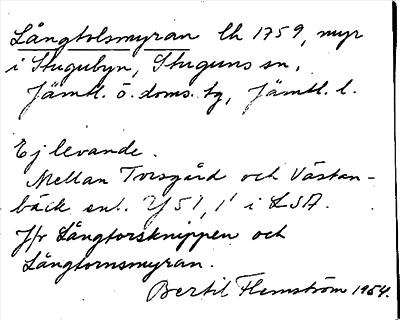 Långtolsmyran lh 1759, myr
i Stugubyn, Stuguns sn,
Jämtl. ö. doms. tg, Jämtl. l.
Ej levande.
Mellan Tvisgård och Västan-
bäck enl. Y 51, 1 i LSA.
Jfr Långtorsknippen och
Långtornsmyran.
Bertil Flemström 1954.